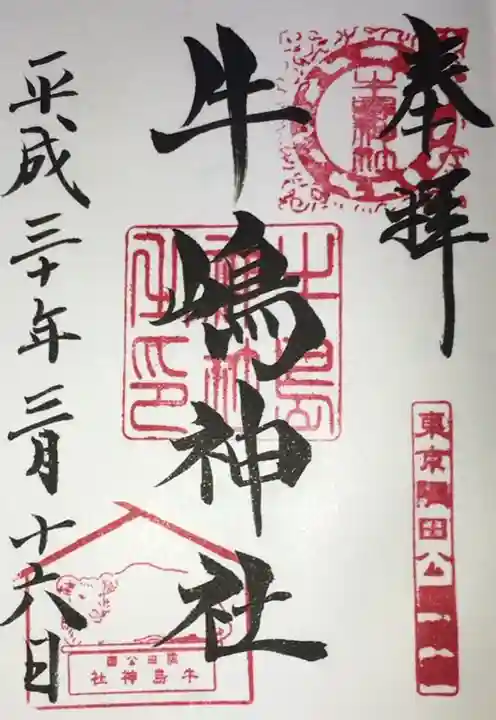 奉拝
東京隅田公園
牛嶋神社
牛島神社印
隅田公園
牛島神社
平成三十年三月十六日